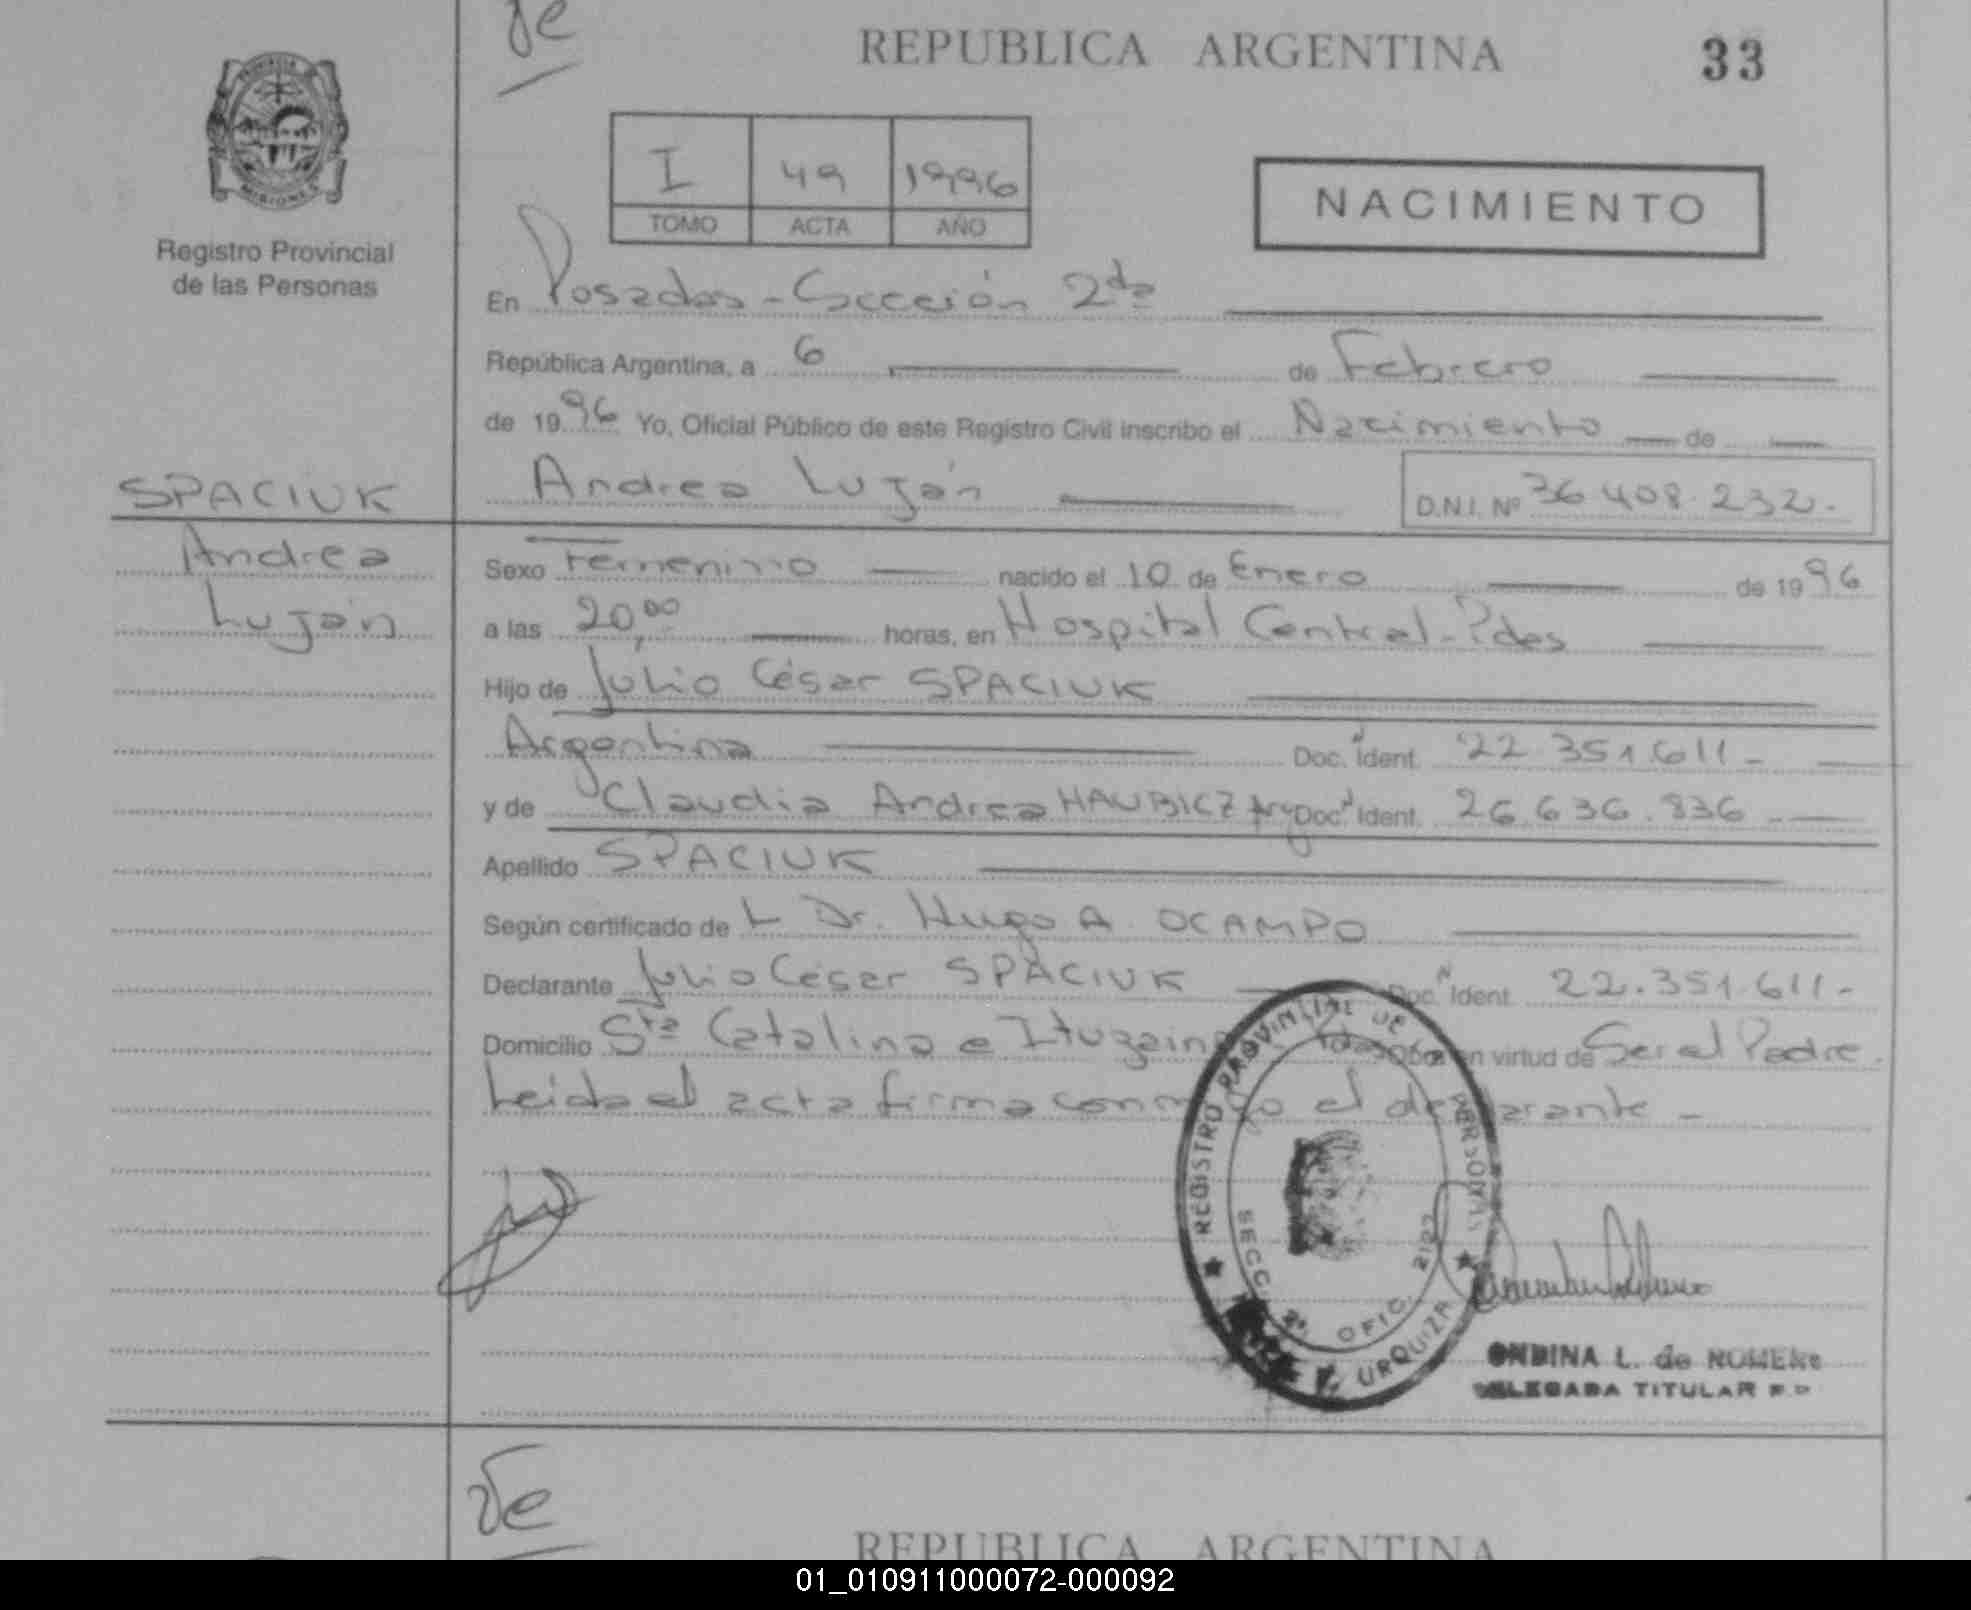 REPUBLICA ARGENTINA
33
I 49 1996
TOMO ACTA AÑO
NACIMIENTO
PROVINCIA DE
MISIONES
Registro Provincial
de las Personas
SPACIUK
Andrea
Luján
En Posadas - Sección 2da
República Argentina, a 6 de Febrero
de 1996 Yo, Oficial Público de este Registro Civil inscribo el Nacimiento de
Andrea Luján D.N.I. Nº 36.408.232.-
Sexo Femenino nacido el 10 de Enero de 1996
a las 20,00 horas, en Hospital Central - Pdas
Hijo de Julio César SPACIUK
Argentina Doc. Ident. 22.351.611 -
y de Claudia Andrea HAUBICZ Arg Doc. Ident. 26.636.836 -
Apellido SPACIUK
Según certificado de L Dr. Hugo A. OCAMPO
Declarante Julio César SPACIUK Doc. Ident. 22.351.611 -
Domicilio Sta Catalina e Ituzaingó en virtud de Ser el Padre.
Leida el acta firma conmigo el declarante -
REGISTRO PROVINCIAL DE PERSONAS
SECC. 2ª OFIC. 2127
URQUIZA
ONDINA L. de
DELEGADA TITULAR
REPUBLICA ARGENTINA
01_010911000072-000092